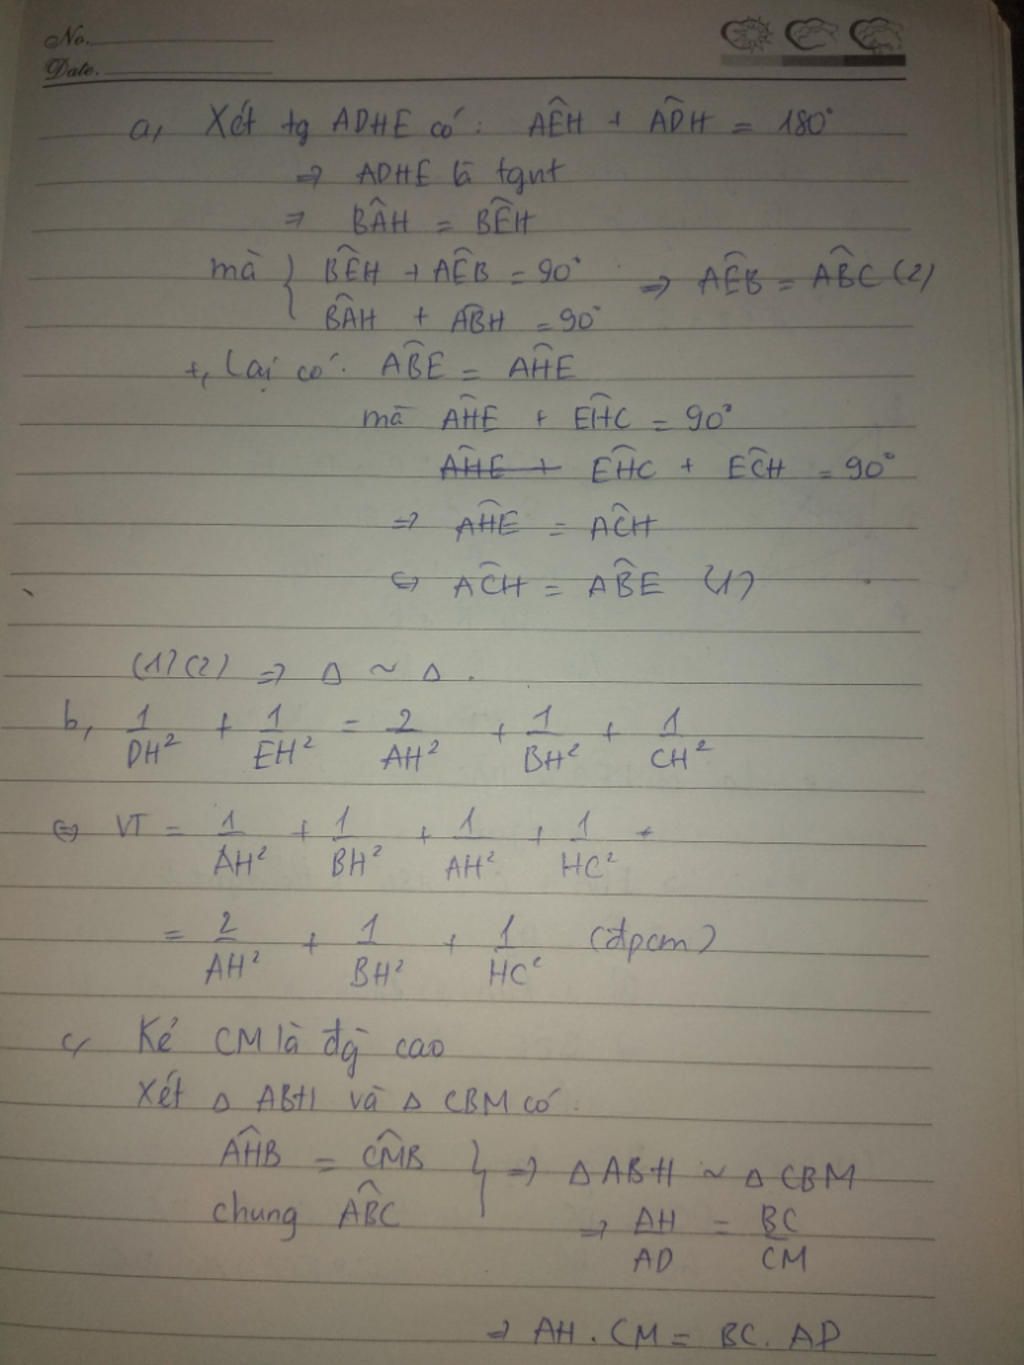 No.
Date.
a, Xét tg ADHE có: AÊH + AD̂H = 180°
⇒ ADHE là tgnt
⇒ BÂH = BÊH
mà { BÊH + AÊB = 90° ⇒ AÊB = AB̂C (2)
BÂH + AB̂H = 90°
+, Lại có: AB̂E = AĤE
mà AĤE + EĤC = 90°
AĤE + EĤC + EĈH = 90°
⇒ AĤE = AĈH
⇔ AĈH = AB̂E (1)
(1)(2) ⇒ Δ ~ Δ.
b, 1/DH² + 1/EH² = 2/AH² + 1/BH² + 1/CH²
⇔ VT = 1/AH² + 1/BH² + 1/AH² + 1/HC²
= 2/AH² + 1/BH² + 1/HC² (đpcm)
c, Kẻ CM là đg cao
Xét Δ ABH và Δ CBM có:
AĤB = CM̂B } ⇒ Δ ABH ~ Δ CBM
chung AB̂C ⇒ AH/AD = BC/CM
⇒ AH . CM = BC . AD